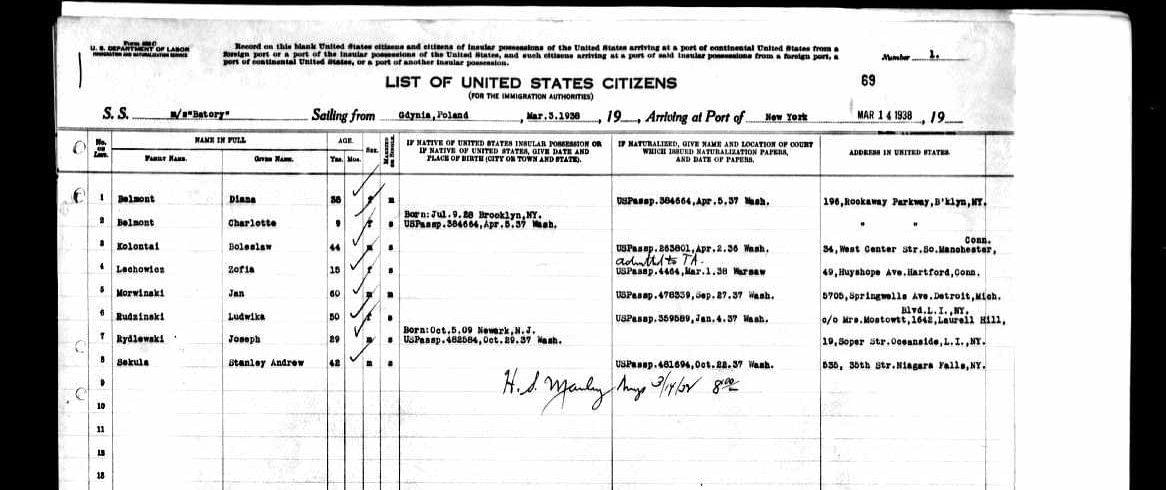 Form 630 C
U. S. DEPARTMENT OF LABOR
IMMIGRATION AND NATURALIZATION SERVICE
Record on this blank United States citizens and citizens of insular possessions of the United States arriving at a port of continental United States from a
foreign port or a port of the insular possessions of the United States, and such citizens arriving at a port of said insular possessions from a foreign port, a
port of continental United States, or a port of another insular possession.
Number 1.
LIST OF UNITED STATES CITIZENS
(FOR THE IMMIGRATION AUTHORITIES)
69
S. S. m/s"Batory" Sailing from Gdynia, Poland , Mar.3.1938 , 19 , Arriving at Port of New York MAR 14 1938 , 19
No. ON LIST. NAME IN FULL AGE. SEX. MARRIED OR SINGLE. IF NATIVE OF UNITED STATES INSULAR POSSESSION OR IF NATIVE OF UNITED STATES, GIVE DATE AND PLACE OF BIRTH (CITY OR TOWN AND STATE). IF NATURALIZED, GIVE NAME AND LOCATION OF COURT WHICH ISSUED NATURALIZATION PAPERS, AND DATE OF PAPERS. ADDRESS IN UNITED STATES.
FAMILY NAME. GIVEN NAME. YRS. MOS.
1 Belmont Diana 38 f m USPassp.384664,Apr.5.37 Wash. 196,Rockaway Parkway,B'klyn,NY.
Born:Jul.9.28 Brooklyn,NY.
2 Belmont Charlotte 9 f s USPassp.384664,Apr.5.37 Wash. " "
Conn.
3 Kolontai Boleslaw 44 m s USPassp.263801,Apr.2.36 Wash. 34,West Center Str.So.Manchester,
admitted to TA.
4 Lechowicz Zofia 15 f s USPassp.4464,Mar.1.38 Warsaw 49,Huyshope Ave.Hartford,Conn.
5 Morwinski Jan 60 m m USPassp.478339,Sep.27.37 Wash. 5705,Springwells Ave.Detroit,Mich.
Blvd.L.I.,NY.
6 Rudzinski Ludwika 50 f s USPassp.359589,Jan.4.37 Wash. c/o Mrs.Mostowtt,1642,Laurell Hill,
Born:Oct.5.09 Newark,N.J.
7 Rydlewski Joseph 29 m s USPassp.482584,Oct.29.37 Wash. 19,Soper Str.Oceanside,L.I.,NY.
8 Sekula Stanley Andrew 42 m s USPassp.481694,Oct.22.37 Wash. 535, 35th Str.Niagara Falls,NY.
9
H. S. 3/14/38 8 00
10
11
12
13